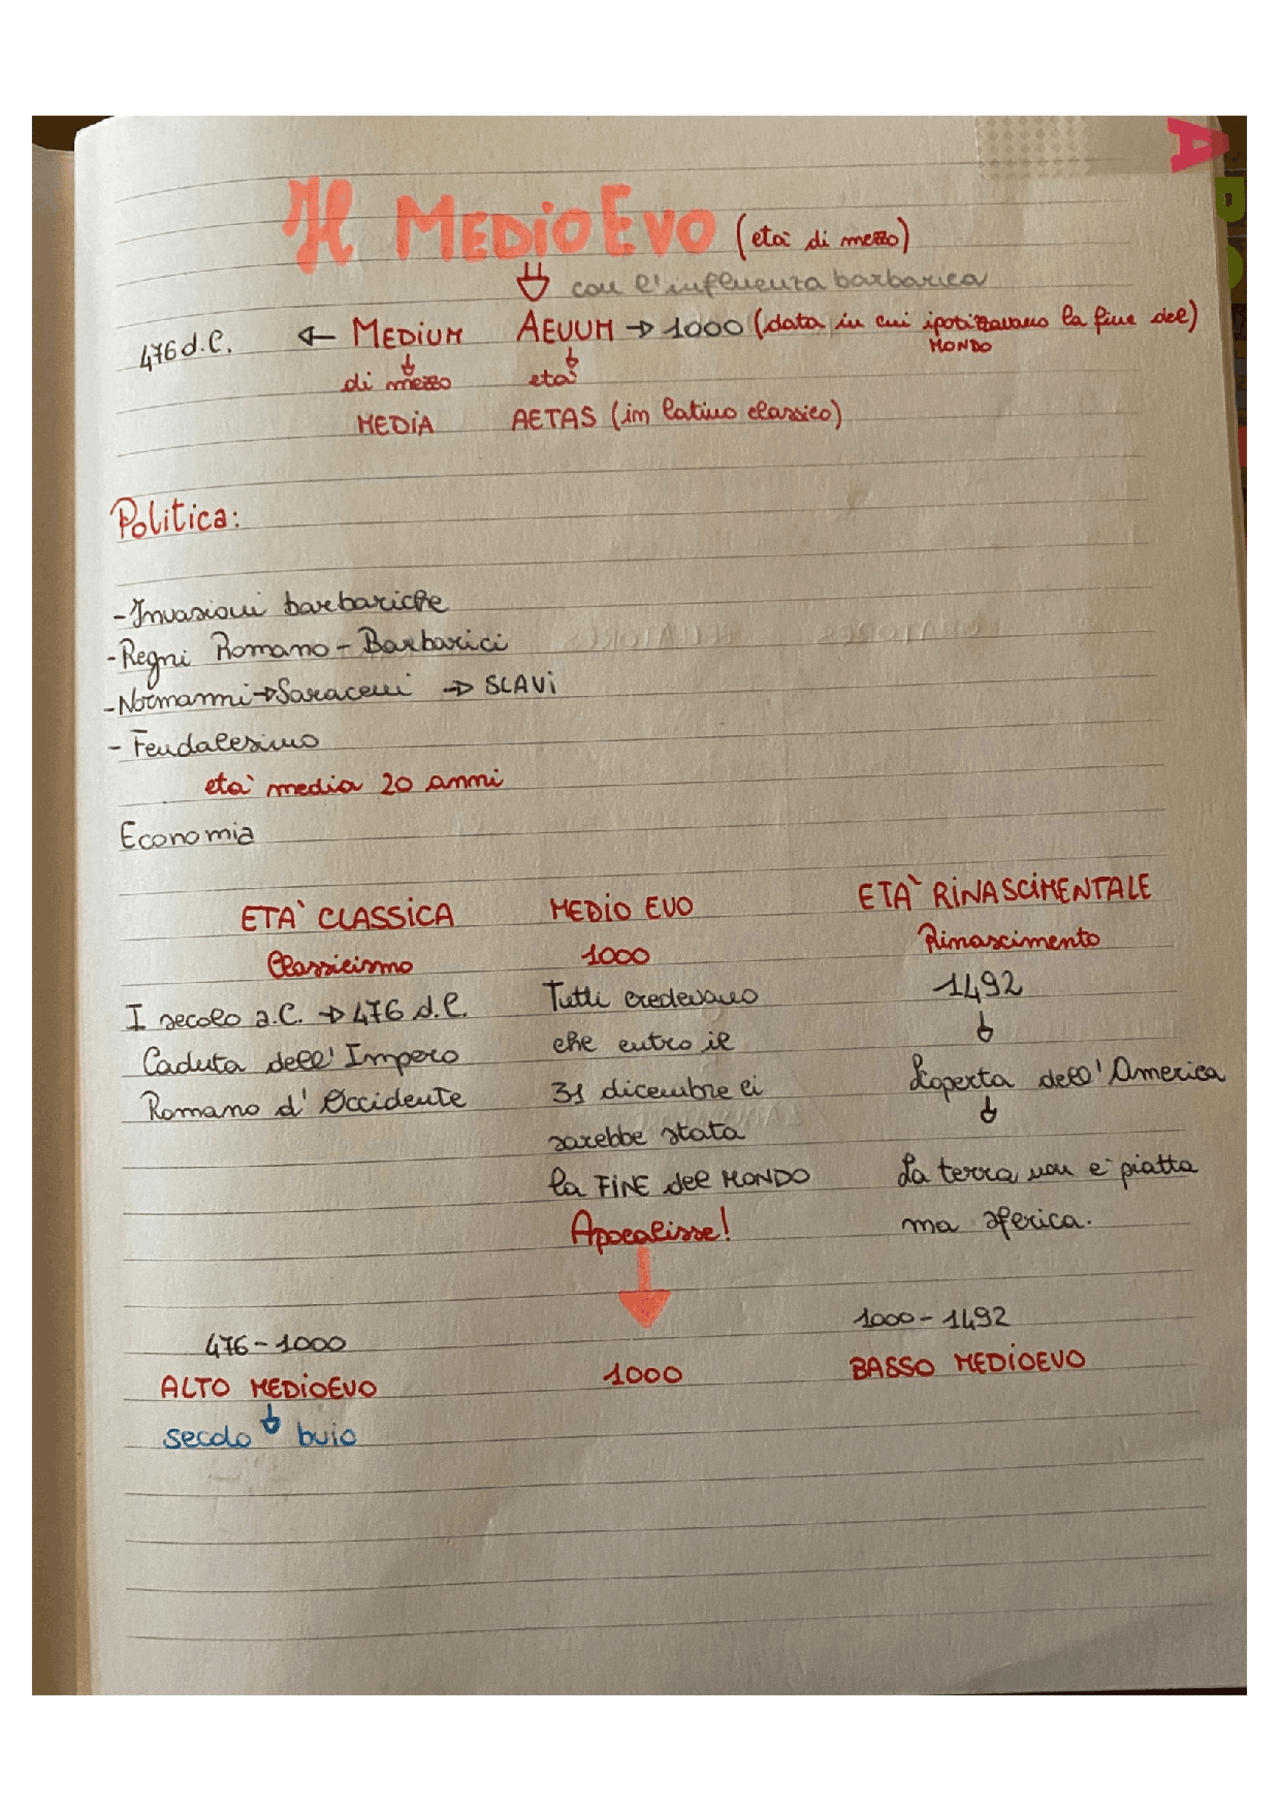 Il MEDIOEVO (età di mezzo)
con l'influenza barbarica
476 d.C. ← MEDIUM AEUUM → 1000 (data in cui ipotizzavano la fine del)
MONDO
di mezzo età
MEDIA AETAS (in latino classico)
Politica:
- Invasioni barbariche
- Regni Romano - Barbarici
- Normanni → Saraceni → SLAVI
- Feudalesimo
età media 20 anni
Economia
ETA' CLASSICA MEDIO EVO ETA' RINASCIMENTALE
Classicismo 1000 Rinascimento
I secolo a.C. → 476 d.C. Tutti credevano 1492
Caduta dell'Impero che entro il
Romano d'Occidente 31 dicembre ci Scoperta dell'America
sarebbe stata
la FINE del MONDO La terra non è piatta
Apocalisse! ma sferica.
476 - 1000 1000 - 1492
ALTO MEDIOEVO 1000 BASSO MEDIOEVO
secolo buio